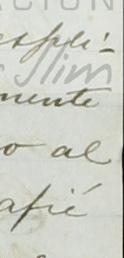 ACIÓN
espli-
Slim
mente
o al
afié